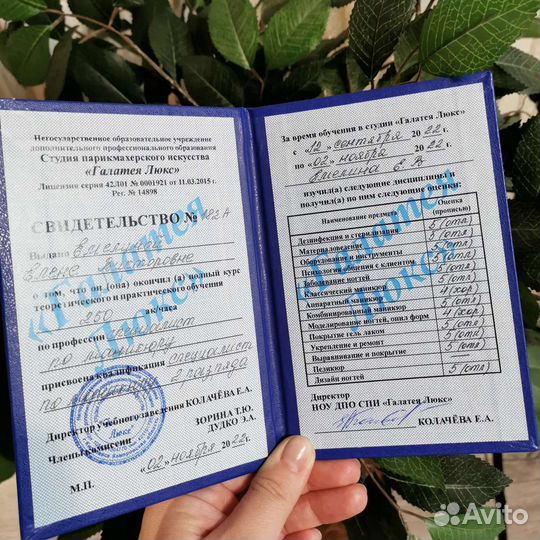 Негосударственное образовательное учреждение
дополнительного профессионального образования
Студия парикмахерского искусства
«Галатея Люкс»
Лицензия серия 42Л01 № 0001921 от 11.03.2015 г.
Рег. № 14898
СВИДЕТЕЛЬСТВО № 183А
Выдано Емелиной
Елене Викторовне
о том, что он (она) окончил (а) полный курс
теоретического и практического обучения
250 ак/часа
по профессии специалист
по маникюру
присвоена квалификация специалист
по маникюру 2 разряда
Директор учебного заведения КОЛАЧЁВА Е.А.
Члены комиссии ЗОРИНА Т.Ю.
ДУДКО Э.А.
«02» ноября 2022г.
М.П.
За время обучения в студии «Галатея Люкс»
с «12» сентября 2022г.
по «02» ноября 2022г.
Емелина Е.В
изучил(а) следующие дисциплины и
получил(а) по ним следующие оценки:
Наименование предмета Оценка (прописью)
Дезинфекция и стерилизация 5 (отл)
Материаловедение 5 (отл)
Оборудование и инструменты 5 (отл)
Психология общения с клиентом 5 (отл)
Заболевание ногтей 5 (отл)
Классический маникюр 4 (хор)
Аппаратный маникюр 5 (отл)
Комбинированный маникюр 4 (хор)
Моделирование ногтей, опил форм 5 (отл)
Покрытие гель лаком 5 (отл)
Укрепление и ремонт 5 (отл)
Выравнивание и покрытие —
Педикюр 5 (отл)
Дизайн ногтей
Директор
НОУ ДПО СПИ «Галатея Люкс»
КОЛАЧЁВА Е.А.
«Галатея Люкс»
«Галатея Люкс»
Avito